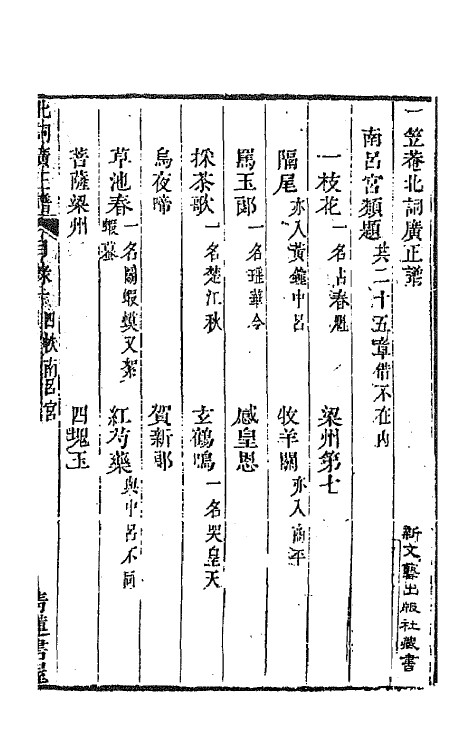 一笠菴北詞廣正譜
南呂宮類題 共二十五章借不在内
一枝花 一名占春魁 梁州第七
隔尾 亦入黃鐘中呂 牧羊關 亦入商平
罵玉郎 一名瑤華令 感皇恩
採茶歌 一名楚江秋 玄鶴鳴 一名哭皇天
烏夜啼 賀新郎
草池春 一名鬭蝦蟆又絮蝦蟇 紅芍藥 與中呂不同
菩薩梁州 四塊玉
北詞廣正譜 目錄 四帙南呂宮 青蓮書屋
新文藝出版社藏書